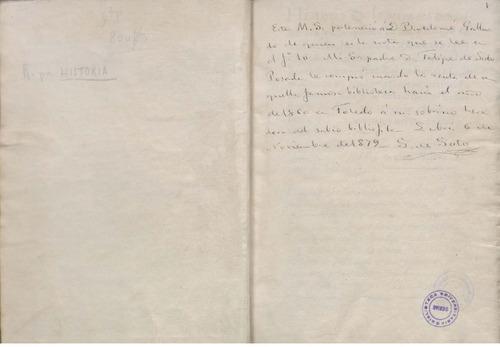 R. pr. HISTORIA
1
Este M. S. perteneció á D Bartolomé Gallar
do de quien es la nota que se lee en
el fº 10. Mi Sr padre D. Felipe de Soto
Posada lo compró cuando la venta de a
quella famosa biblioteca hacia el año
de 1860 en Toledo á un sobrino here
dero del sabio bibliófilo. Labra 6 de
Noviembre de 1879 S. de Soto
BIBLIOTECA UNIVERSITARIA
OVIEDO